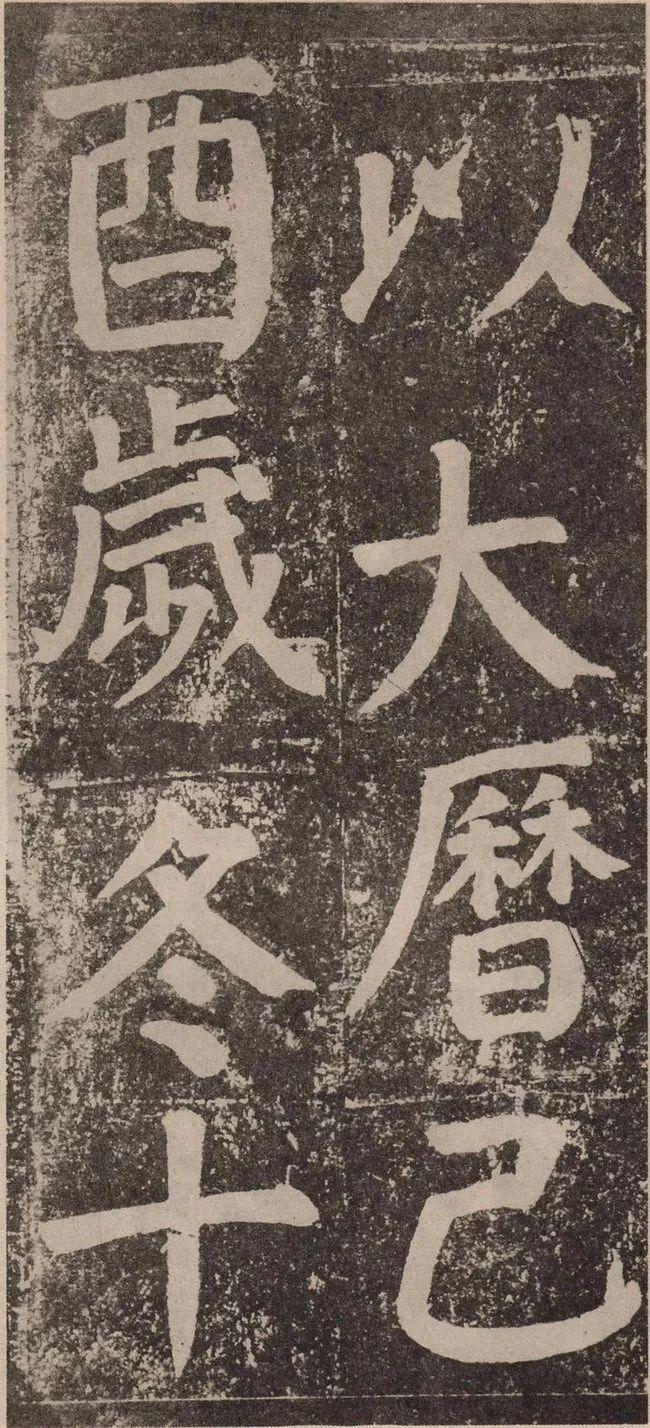 以大曆己
酉歲冬十